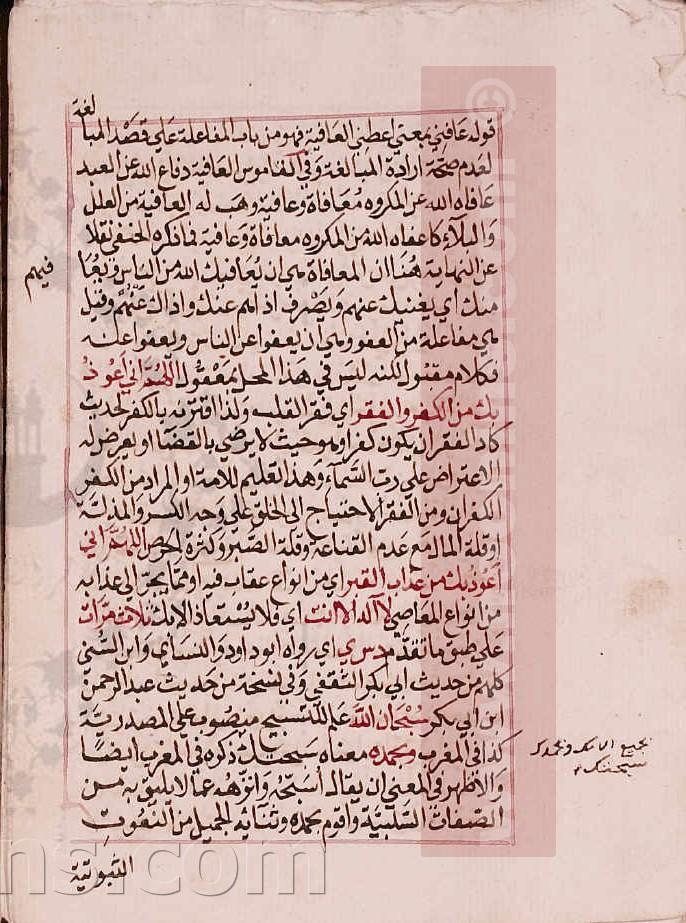 لغة
قوله عافني بمعنى اعطني العافية فهو من باب المفاعلة على قصد المبا
لعدم صحة ارادة المبالغة وفي القاموس العافية دفاع الله عن العبد
عافاه الله عن المكروه معافاة وعافية وهب له العافية من العلل
والبلاء كاعفاه الله من المكروه معافاة وعافية فما ذكره الحنفي نقلا
عن النهاية هنا ان المعافاة هي ان يعافيك الله من الناس ويعافيهم
منك اي يغنيك عنهم ويصرف اذاهم عنك واذاك عنهم وقيل
هي مفاعلة من العفو وهي ان يعفو عن الناس ويعفوا عنه
فكلام مقبول لكنه ليس في هذا المحل بمعقول اللهم اني اعوذ
بك من الكفر والفقر اي فقر القلب ولذا اقترنه بالكفر لحديث
كاد الفقر ان يكون كفرا وهو حيث لا يرضى بالقضا او يعرض له
الاعتراض على رب السماء وهذا تعليم للامة او المراد من الكفر
الكفران ومن الفقر الاحتياج الى الخلق على وجه الكسر والمذلة
او قلة المال مع عدم القناعة وقلة الصبر وكثرة الحرص اللهم اني
اعوذ بك من عذاب القبر اي من انواع عقاب فيه او مما يجر الى عذابه
من انواع المعاصي لا اله الا انت اي فلا يستعاذ الا بك ثلاث مرات
على طبق ما تقدم د س ي اي رواه ابو داود والنساي وابن السني
كلهم من حديث ابي بكر الثقفي وفي نسخة من حديث عبد الرحمن
ابن ابي بكر سبحان الله علم للتسبيح منصوب على المصدرية
كذا في المغرب وبحمده معناه سبحتك ذكره في المغرب ايضا
والاظهر في المعنى ان يقال اسبحه وانزهه عما لا يليق به من
الصفات السلبية واقوم بحمده وثنائه الجميل من النعوت
الثبوتية
فيهم
وبحمدك
سبحتك
ns.com